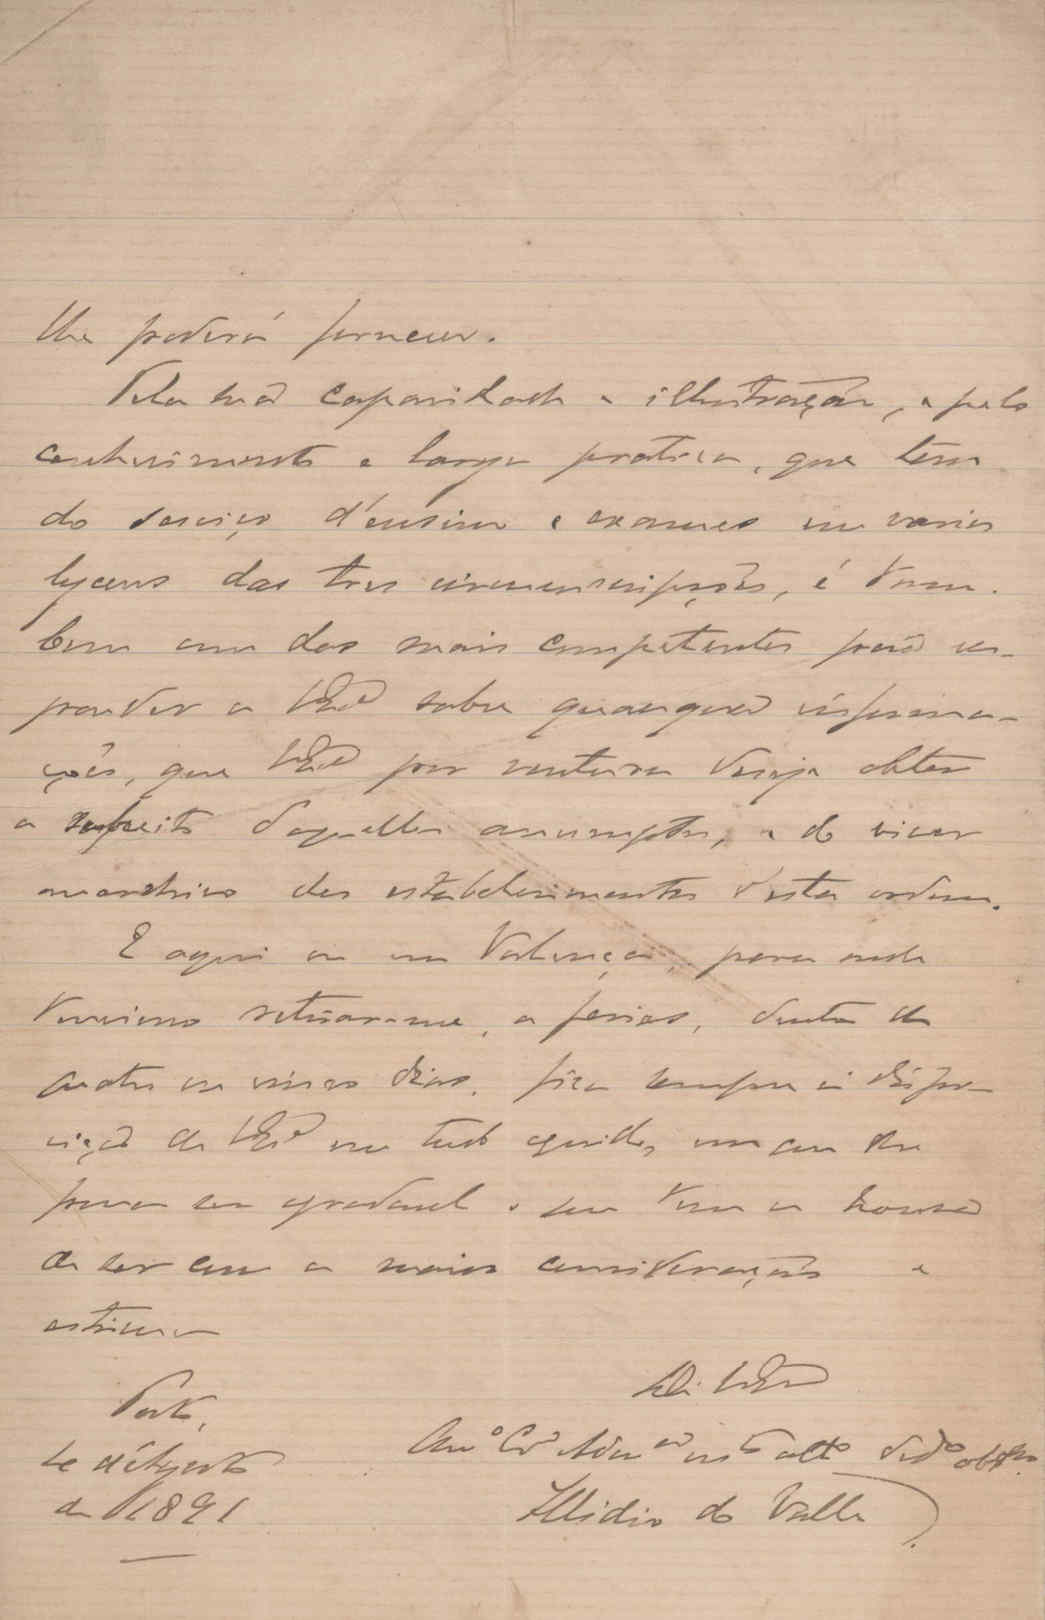 lhe poderá fornecer.
Pela sua capacidade e illustração, e pelo
conhecimento e larga pratica, que tem
do serviço d'ensino e exames em varios
lyceus das tres circumscripções, é tam-
bem um dos mais competentes para res-
ponder a VExª sobre quaesquer informa-
ções, que VExª por ventura deseja obter
a respeito d'aquelles assumptos, e do viver
dos estabelecimentos d'esta ordem.
E aqui ou em Valença, para onde
tenciono retirar-me, a ferias, dentro de
quatro ou cinco dias, fica sempre á dispo-
sição de VExª em tudo aquillo, em que lhe
possa ser agradavel o que tem a honra
de ser com a maior consideração e
estima
De VExª
Porto,
d'Agosto
de 1891
Amº Crº
Illidio do Valle